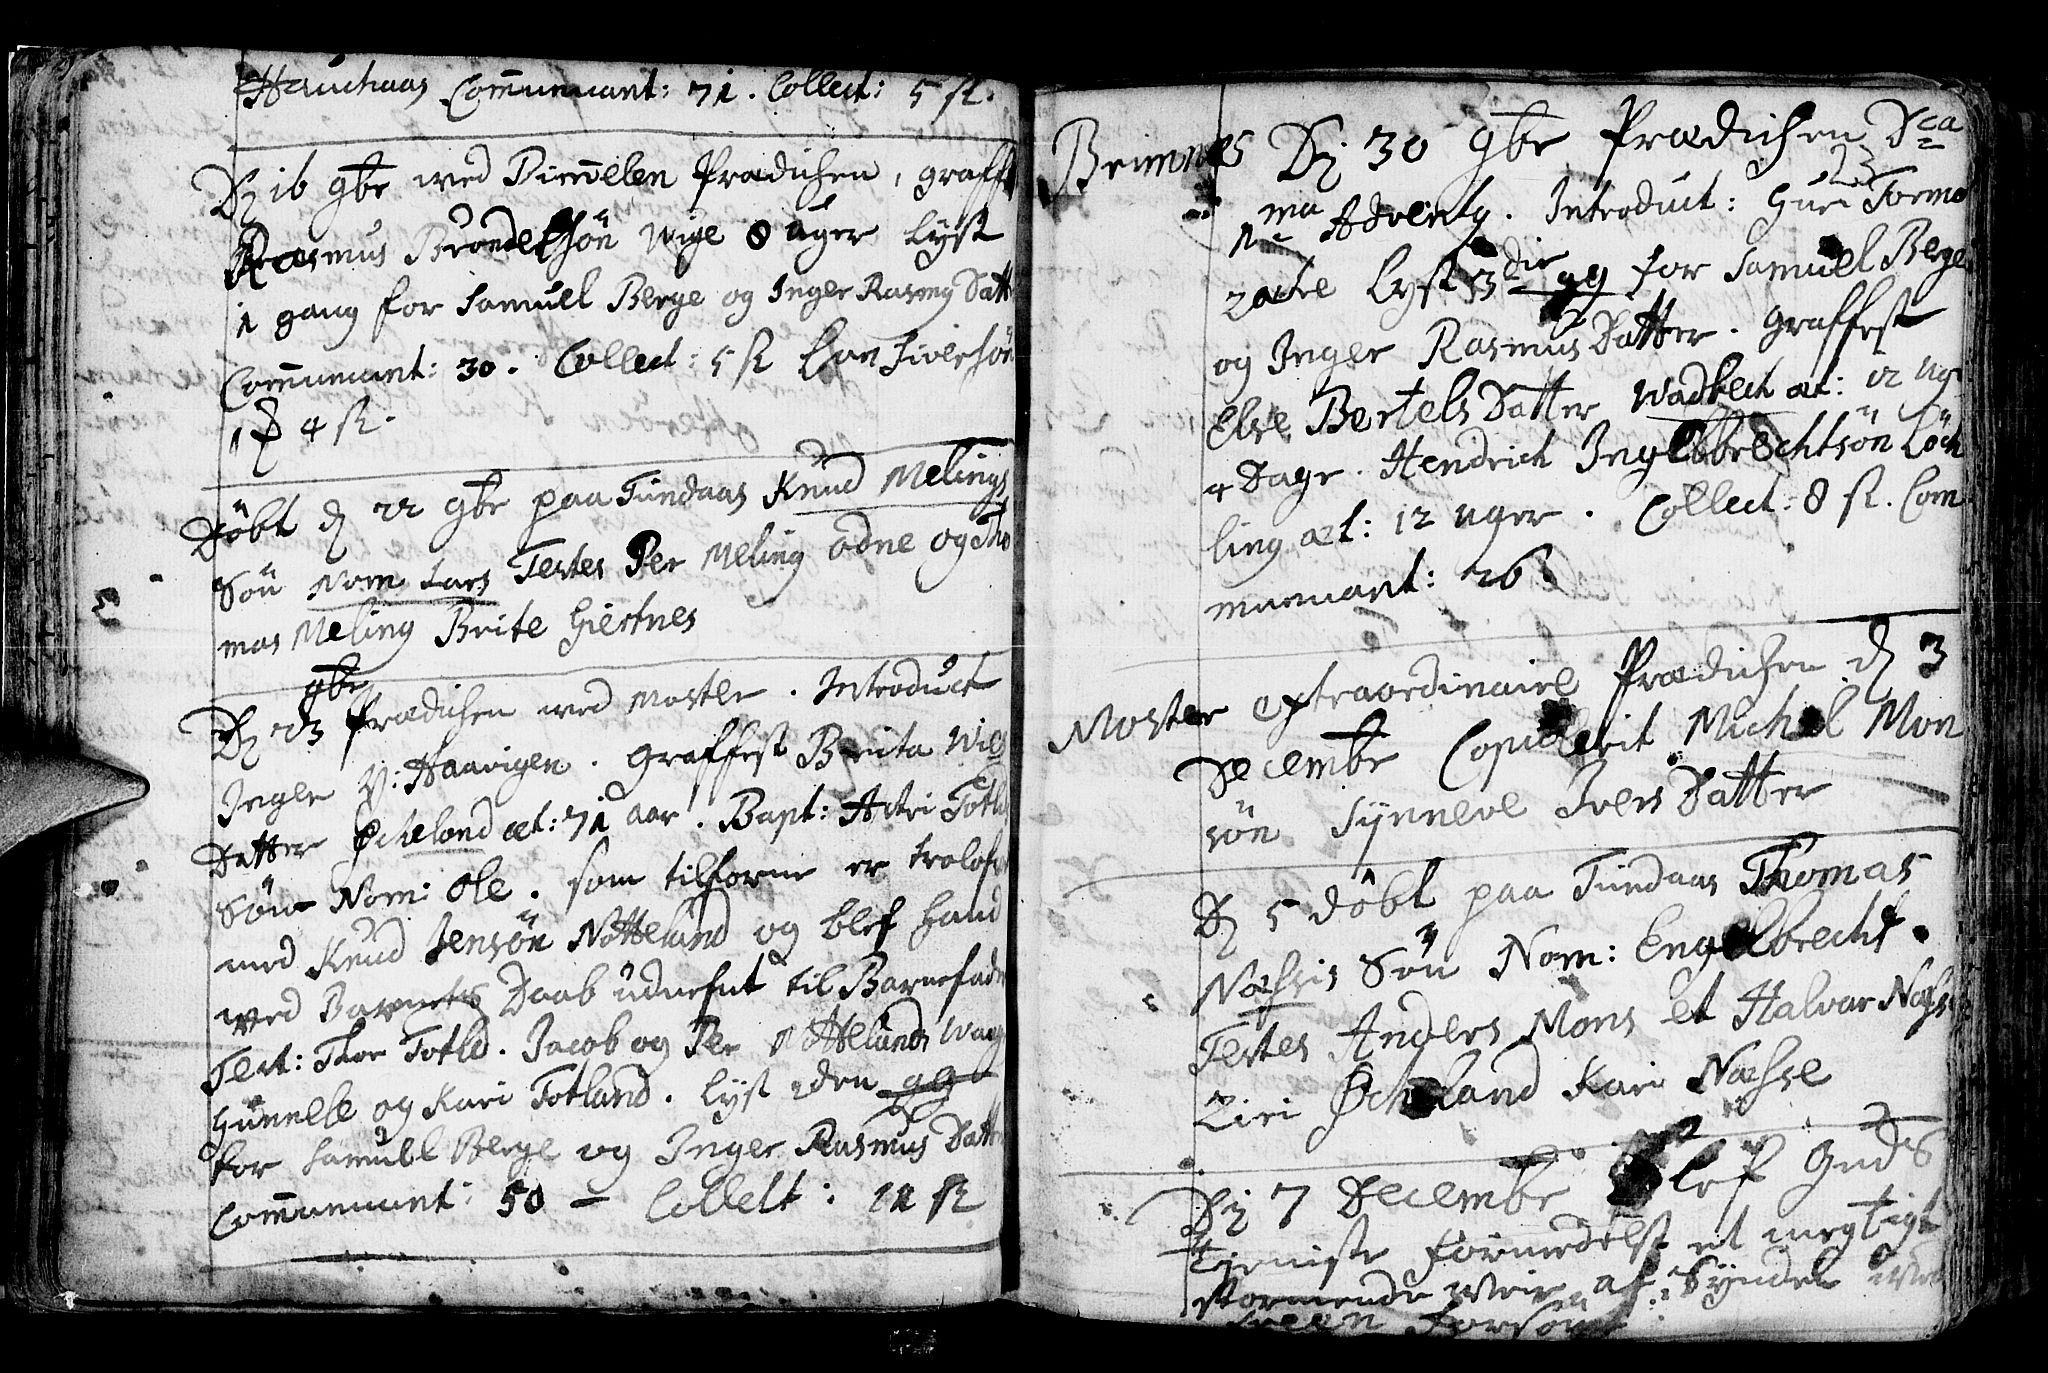 Hauchaas Com̄unicant: 71. Collect: 5 ß.
Dȷ 16 9br wed Bim̄elen Prædichen, graffs
Rasmus Brondelsön Wige 8 uger Lyst
1 gang for Samuel Berge og Inger Rasmus Datt
Com̄unicant: 30. Collect: 5 ß Lon Siversön
4 ß.
Döbt dȷ 22 9br paa Tindaas Knud Melings
Sön Nom Lars Testes Per Meling Odne og Tho
mas Meling Brite Giertnes
9br
Dȷ 23 Prædichen wed Moster. Introduct
Inger V: Haavigen. Graffest Brita Wil
Datter Øcheland æt: 71 aar. Bapt: Actri Totl
Sön Nom: Ole. som tilforne er trolof
med Knud Jensön Nøtteland og blef hand
wed Barnets Daab udnefnt til Barnefad
Test: Thor Totld. Jacob og Per Nøttelands Waag
Gunnele og Kari Totland. Lyst 2den gg
for Samuel Berge og Inger Rasmus Datt
Com̄unicant: 50 — Collect: 12 ß
Brimnes Dȷ 30 9br Prædichen Dca
1ma Advently. Introduct: Guri Tormo
Lyst 3die gg for Samuel Berge
og Inger Rasmus Datter. Graffest
Else Bertels Datter Wadbech æt: 12 ug
4 Dage. Hendrich Ingelbrechtsön Löch
ling æt: 12 uger. Collect: 8 ß. Com
municant: 26.
Moster extraordinaire Prædichen dȷ 3
Decembr Copulerit Michel Mon
sön Synneve Ivers Datter
Dȷ 5 döbt paa Tindaas Thomas
Næsses Sön Nom: Engelbrecht.
Testes Anders Mons et Halvor Næss
Ziri Øcheland Kari Næsse
Dȷ 7 Decembr blef Guds
tieniste formedelst et megtigt
stormende Weir af Synden
forsömt